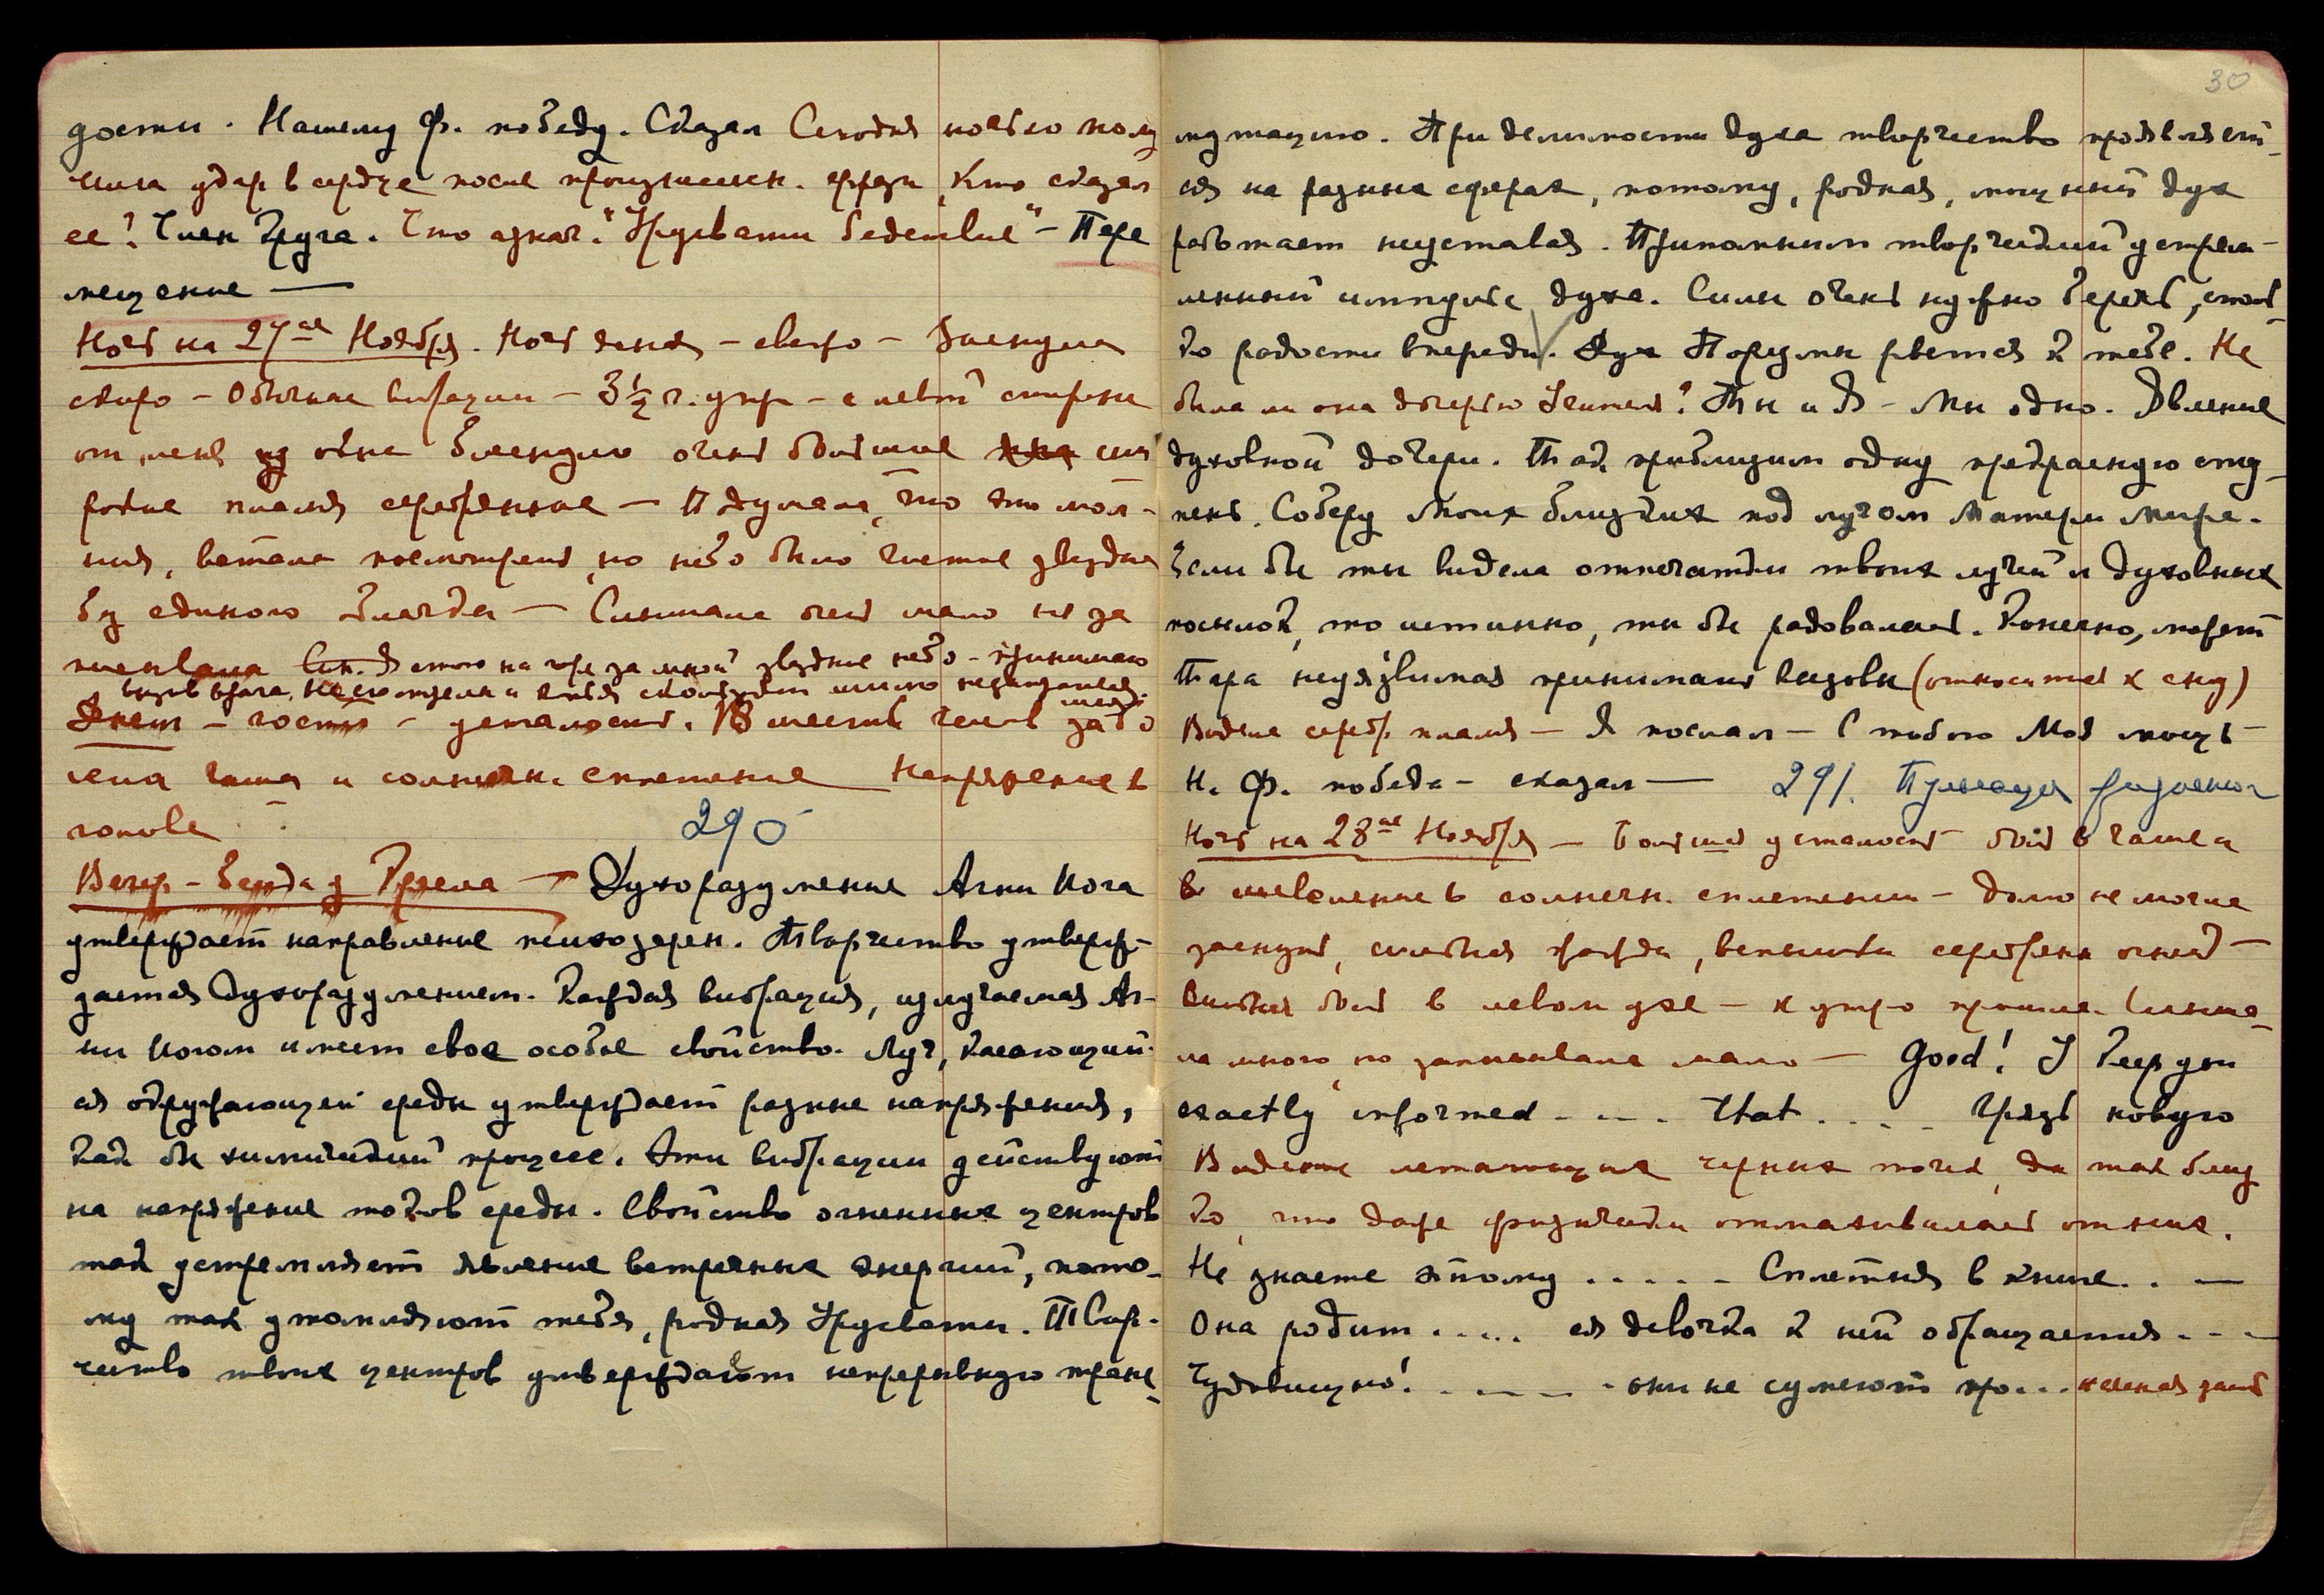 дости. Нашему Ф. победу. Сказал Сегодня ночью полу
чила удар в сердце после произнесен. фразы, Кто сказал
ее? Член Круга. Что означ. "Урусвати бедствие" - Пере
мещение —
Ночь на 27ое Ноября. Ночь
скоро - Обычные вибрации - 3½ ч. утр - с левой стороны
от меня из окна блеснуло очень большое
родное пламя серебряное — Подумала, что это мол-
ния, встала посмотреть, но небо было чистое звездное
без единого облачка — Слышала очень мало не за
писывала Син. стою на горе за мной звездное небо - принимаю
вызов врага,
Днем - гости - усталость. В шесть часов забо
лела чаша и солнечн. сплетение Напряжение в
голове
290
Вечер - Беседа у Рэрела → Духоразумение Агни Йога
утверждает направление психозерен. Творчество утверж-
дается Духоразумением. Каждая вибрация, излучаемая Аг-
ни Йогом имеет свое особое свойство. Луч, касающий-
ся окружающей среды утверждает разные напряжения,
как бы химический процесс. Эти вибрации действуют
на напряжение токов среды. Свойство огненных центров
так устремляет явление встречных энергий, пото-
му так утомляют тебя, родная Урусвати. Твор-
чество твоих центров утверждает непрерывную транс-
30
мутацию. При делимости духа творчество проявляет-
ся на разных сферах, потому, родная, мощный дух
работает неуставая. Припомним творческий устрем-
ленный импульс духа. Силы очень нужно беречь, столь-
ко радости впереди. Дух Порумы рвется к тебе. Не
была ли она дочерью Учителя? Ты и Я - Мы одно. Явление
духовной дочери. Так приблизим одну прекрасную сту-
пень. Соберу Моих близких под лучом Матери Мира.
Если бы ты видела отпечатки твоих лучей и духовных
посылок, то истинно, ты бы радовалась. Конечно, может
Тара неуязвимая принимать вызовы (относится к сну)
Видение серебр. пламя — Я послал — С тобою Моя мощь —
Н. Ф. победа - сказал — 291.
Ночь на 28ое Ноября — Большая усталость боль в чаше и
в шевеление в солнечн. сплетении - долго не могла
заснуть, сильная жажда, вспышки серебрян. огней —
Сильная боль в левом ухе — к утро прошла. Слыша-
ла много, но записывала мало — Good! I keep you
exactly informed - - - . that . . . . Грязь новую
Видение летающих черных точек, да так близ
ко, что даже физически отталкивалась от них.
Не знаете этому . . . . - Сплетня в книге . . —
Она родит . . . . ся девочка к ней обращается . - - —
Чудовищно! . - — - - они не сумеют про...